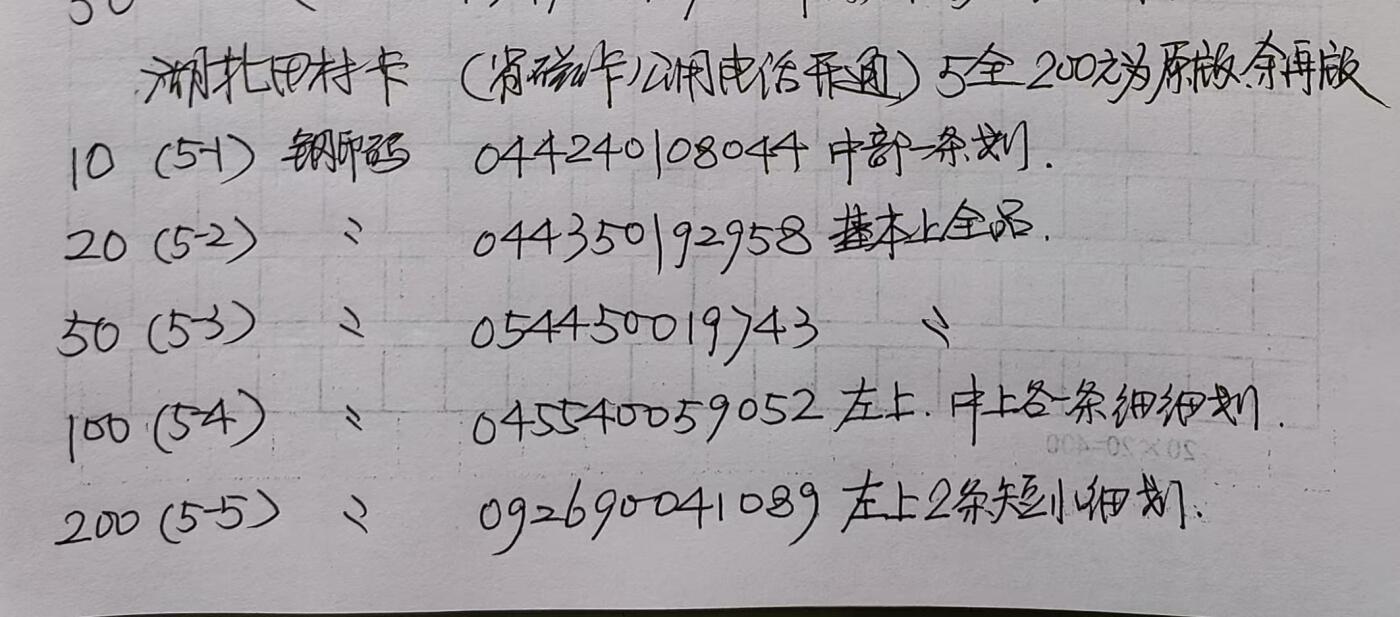 湖北田村卡 (省磁卡公用电话开通) 5全 200元为原版.余再版
10 (5-1) 钢印码 044240108044 中部一条划.
20 (5-2) 〃 044350192958 基本上全品.
50 (5-3) 〃 054450019743 〃
100 (5-4) 〃 045540059052 左上.中上各一条细细划.
20×20=400
200 (5-5) 〃 092690041089 左上2条短小细划.